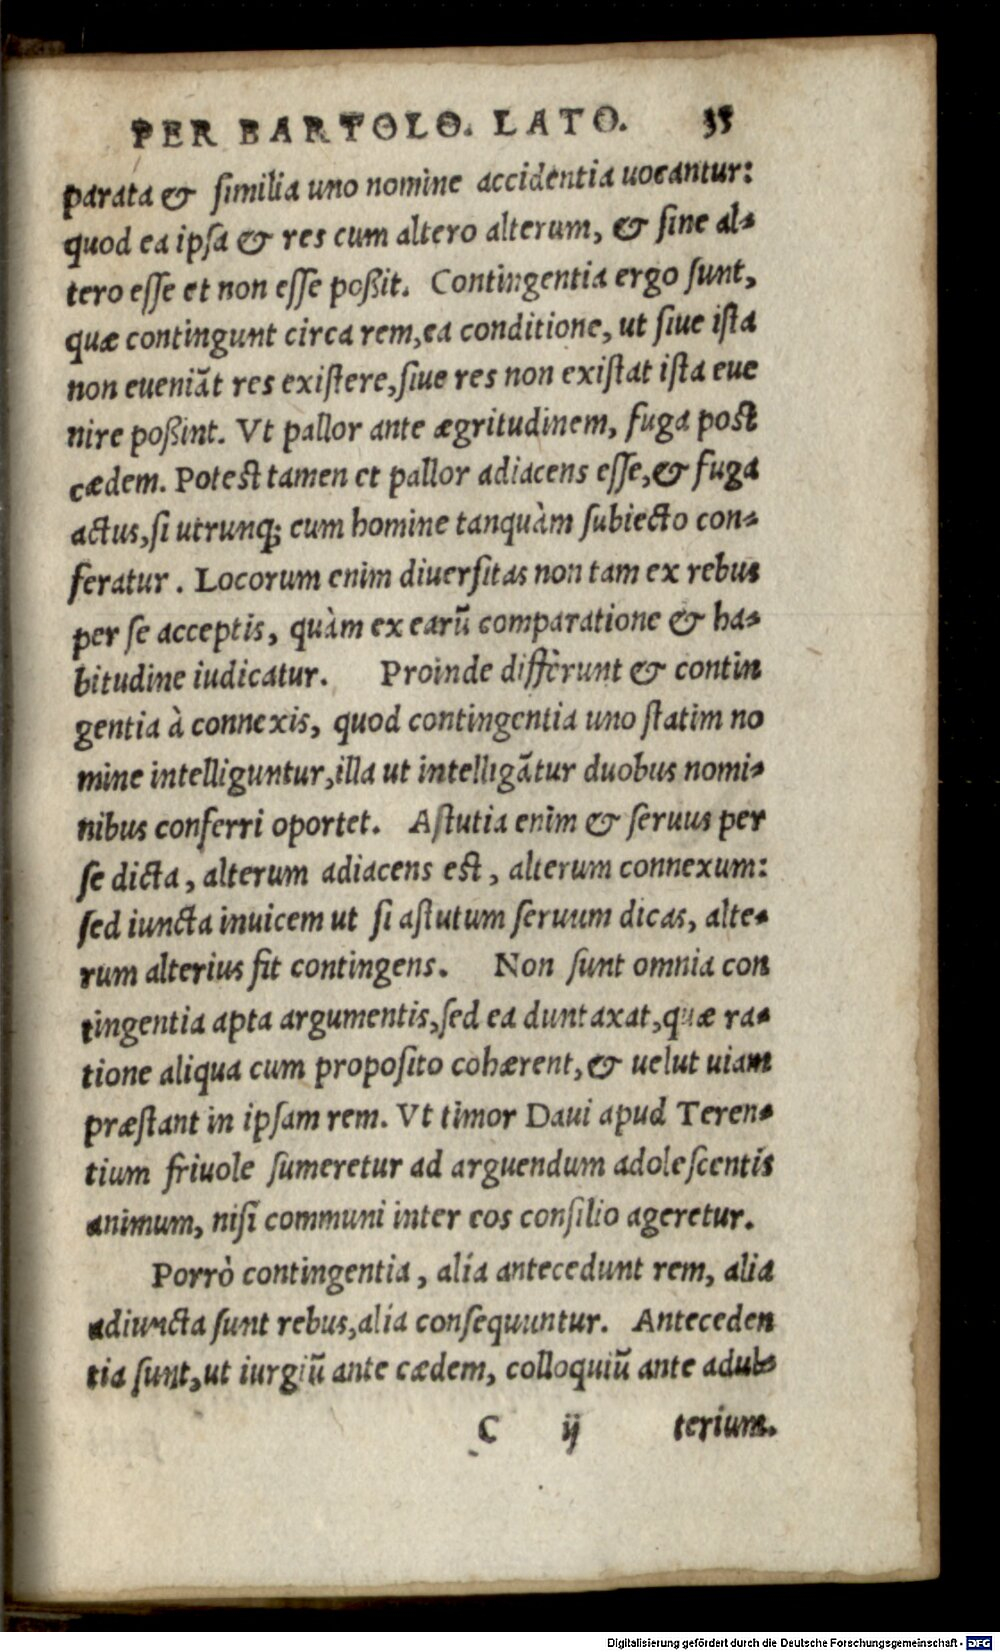 PER BARTOLO. LATO. 35
parata & similia uno nomine accidentia uocantur:
quod ea ipsa & res cum altero alterum, & sine al-
tero esse et non esse poßit. Contingentia ergo sunt,
quæ contingunt circa rem, ea conditione, ut siue ista
non eueniãt res existere, siue res non existat ista eue
nire poßint. Vt pallor ante ægritudinem, fuga post
cædem. Potest tamen et pallor adiacens esse, & fuga
actus, si utrunq; cum homine tanquàm subiecto con-
feratur. Locorum enim diuersitas non tam ex rebus
per se acceptis, quàm ex earũ comparatione & ha-
bitudine iudicatur. Proinde differunt & contin
gentia à connexis, quod contingentia uno statim no
mine intelliguntur, illa ut intelligãtur duobus nomi-
nibus conferri oportet. Astutia enim & seruus per
se dicta, alterum adiacens est, alterum connexum:
sed iuncta inuicem ut si astutum seruum dicas, alte-
rum alterius fit contingens. Non sunt omnia con
tingentia apta argumentis, sed ea duntaxat, quæ ra-
tione aliqua cum proposito cohærent, & uelut uiam
præstant in ipsam rem. Vt timor Daui apud Teren-
tium friuole sumeretur ad arguendum adolescentis
animum, nisi communi inter eos consilio ageretur.
Porrò contingentia, alia antecedunt rem, alia
adiuncta sunt rebus, alia consequuntur. Anteceden
tia sunt, ut iurgiũ ante cædem, colloquiũ ante adul-
C ij terium.
Digitalisierung gefördert durch die Deutsche Forschungsgemeinschaft - DFG